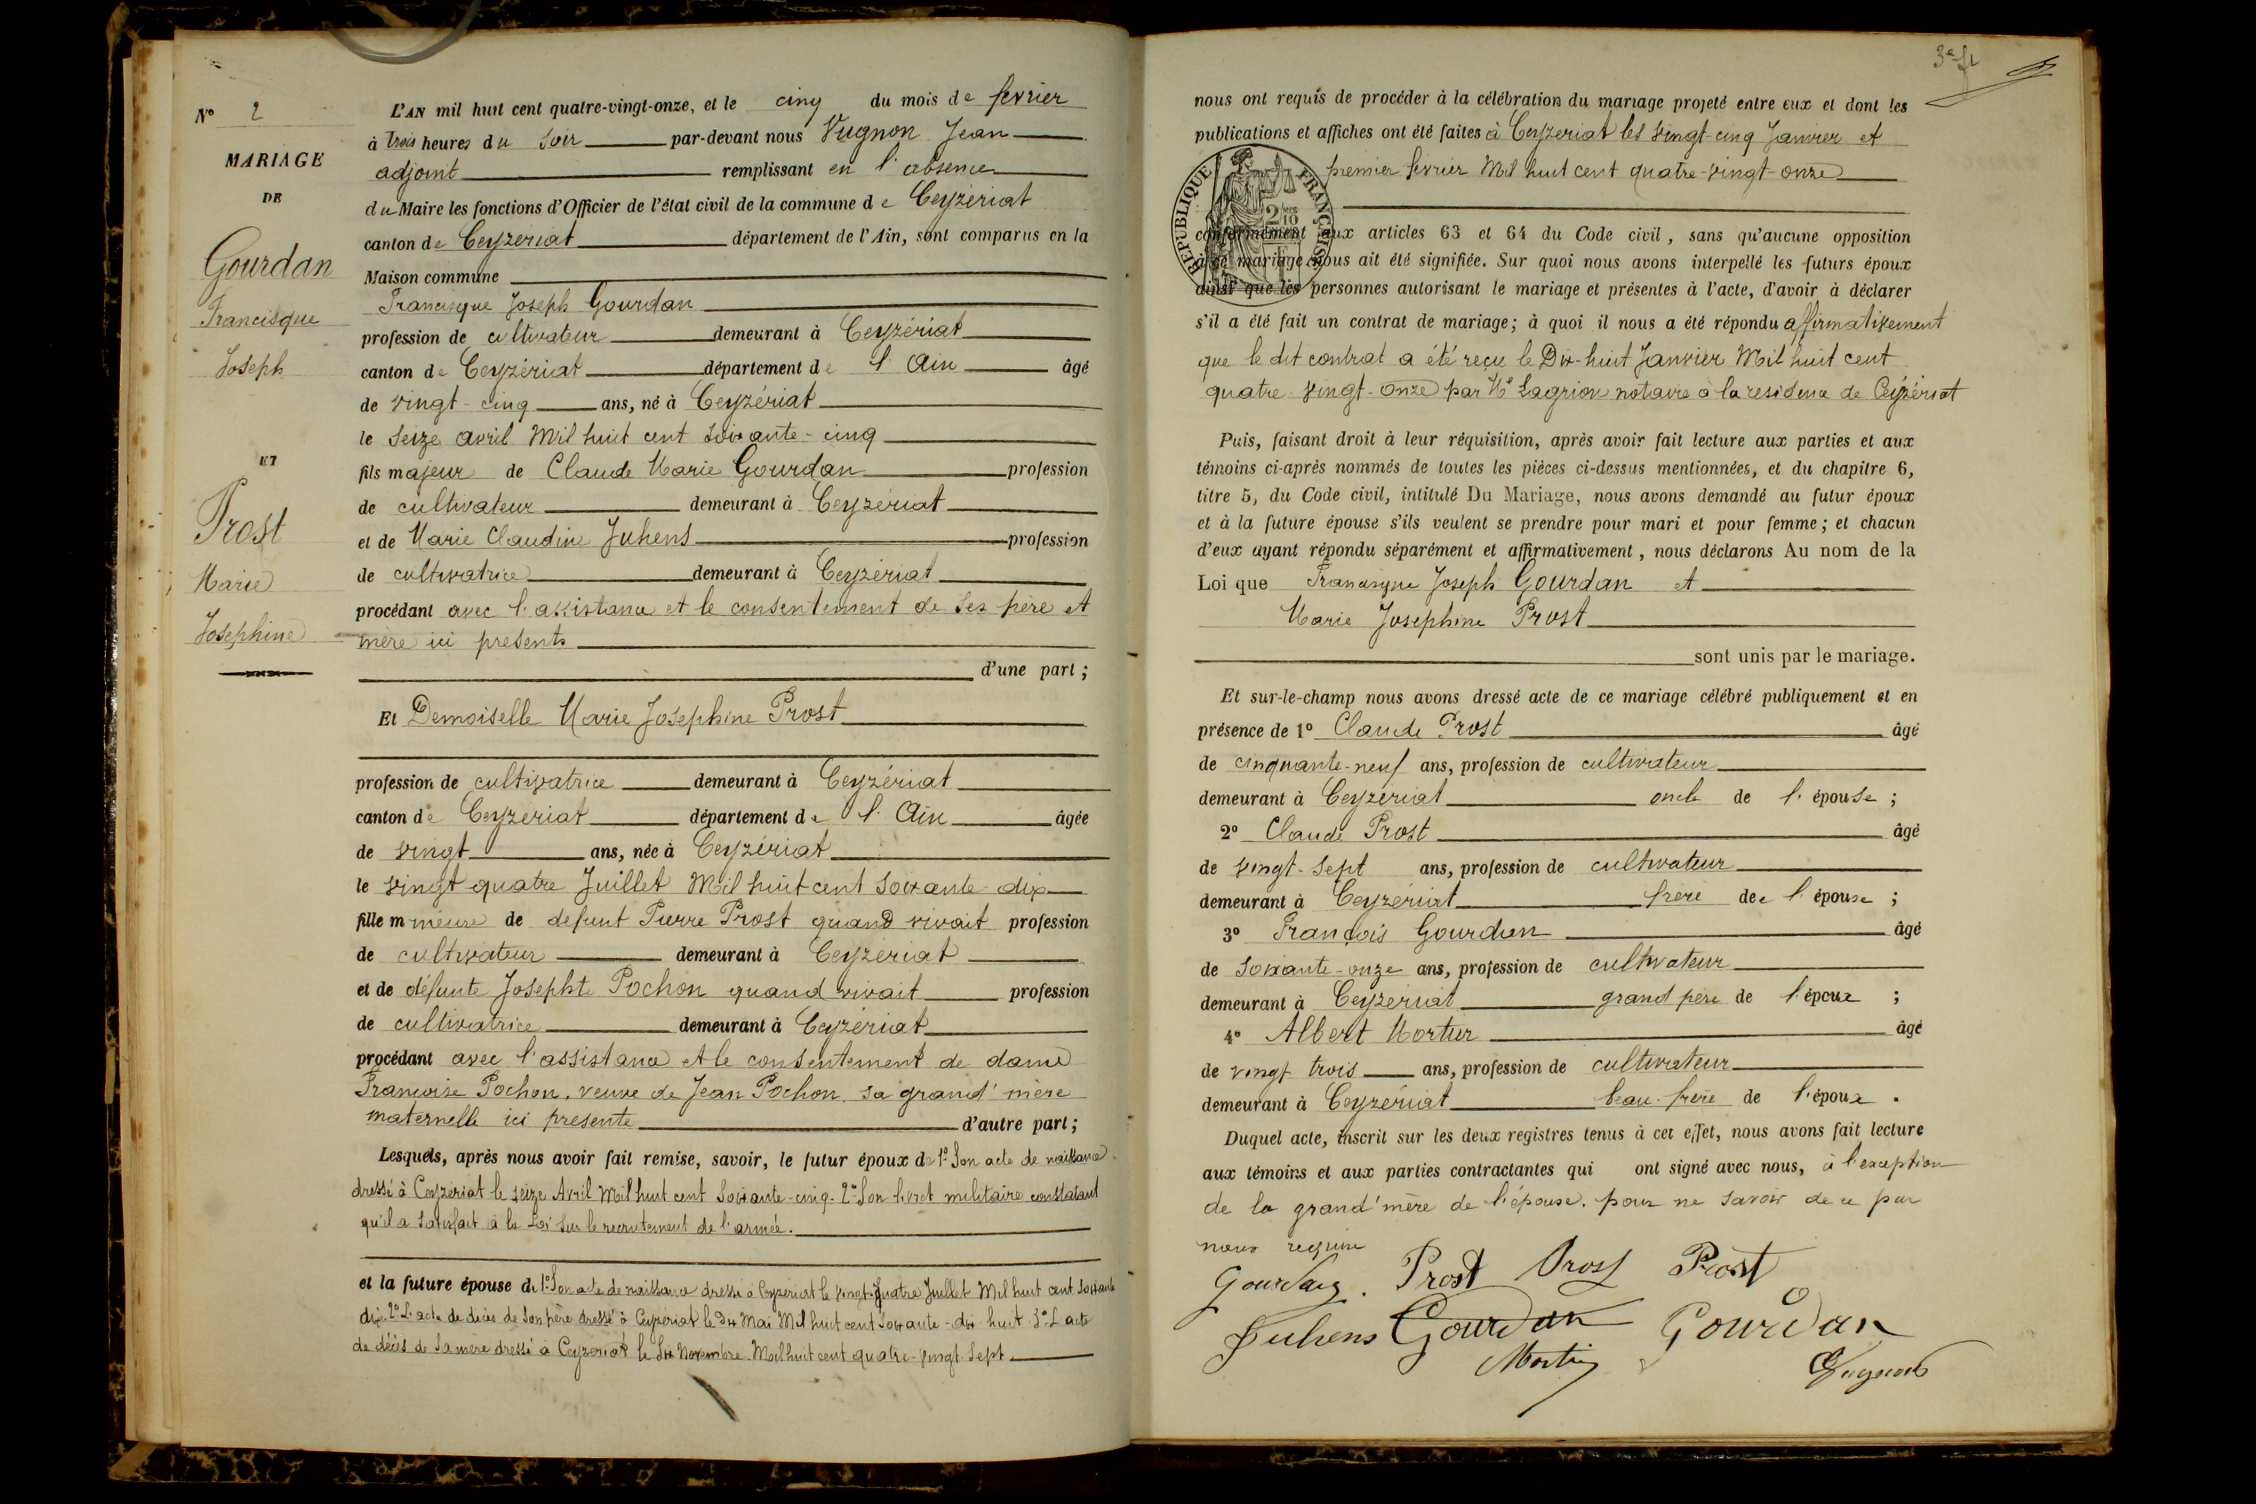 N° 2
MARIAGE
DE
Gourdan
Francisque
Joseph
ET
Prost
Marie
Josephine
L'AN mil huit cent quatre-vingt-onze, et le cinq du mois de fevrier
à trois heures du soir par-devant nous Vugnon Jean
adjoint remplissant en l'absence
du Maire les fonctions d'Officier de l'état civil de la commune de Ceyzériat
canton de Ceyzeriat département de l'Ain, sont comparus en la
Maison commune
Francisque Joseph Gourdan
profession de cultivateur demeurant à Ceyzériat
canton de Ceyzériat département de l'Ain âgé
de vingt-cinq ans, né à Ceyzériat
le seize avril Mil huit cent soixante-cinq
fils majeur de Claude Marie Gourdan profession
de cultivateur demeurant à Ceyzériat
et de Marie Claudine Juhens profession
de cultivatrice demeurant à Ceyzériat
procédant avec l'assistance et le consentement de ses père et
mère ici présents
d'une part ;
Et Demoiselle Marie Josephine Prost
profession de cultivatrice demeurant à Ceyzériat
canton de Ceyzériat département de l'Ain âgée
de vingt ans, née à Ceyzériat
le vingt quatre Juillet Mil huit cent soixante-dix
fille mineure de defunt Pierre Prost quand vivait profession
de cultivateur demeurant à Ceyzériat
et de défunte Josephte Pochon quand vivait profession
de cultivatrice demeurant à Ceyzériat
procédant avec l'assistance et le consentement de dame
Francoise Pochon, veuve de Jean Pochon, sa grand'mère
maternelle ici presente d'autre part ;
Lesquels, après nous avoir fait remise, savoir, le futur époux de 1° Son acte de naissance
dressé à Ceyzériat le seize Avril Mil huit cent soixante-cinq - 2° Son livret militaire constatant
qu'il a satisfait à la Loi sur le recrutement de l'armée.
et la future épouse de 1° Son acte de naissance dressé à Ceyzeriat le vingt-quatre Juillet Mil huit cent soixante
dix. 2° L'acte de décès de son père dressé à Ceyzeriat le dix Mai Mil huit cent soixante-dix-huit 3° L'acte
de décès de sa mère dressé à Ceyzeriat le six Novembre Mil huit cent quatre-vingt-sept
nous ont requis de procéder à la célébration du mariage projeté entre eux et dont les
publications et affiches ont été faites à Ceyzeriat les vingt-cinq Janvier et
premier fevrier Mil huit cent quatre-vingt-onze
RÉPUBLIQUE FRANÇAISE
conformément aux articles 63 et 64 du Code civil, sans qu'aucune opposition
à ce mariage nous ait été signifiée. Sur quoi nous avons interpellé les futurs époux
ainsi que les personnes autorisant le mariage et présentes à l'acte, d'avoir à déclarer
s'il a été fait un contrat de mariage; à quoi il nous a été répondu affirmativement
que le dit contrat a été reçu le Dix-huit Janvier Mil huit cent
quatre-vingt-onze par Me Lagrion notaire à la residence de Ceyzériat
Puis, faisant droit à leur réquisition, après avoir fait lecture aux parties et aux
témoins ci-après nommés de toutes les pièces ci-dessus mentionnées, et du chapitre 6,
titre 5, du Code civil, intitulé Du Mariage, nous avons demandé au futur époux
et à la future épouse s'ils veulent se prendre pour mari et pour femme ; et chacun
d'eux ayant répondu séparément et affirmativement, nous déclarons Au nom de la
Loi que Francisque Joseph Gourdan et
Marie Josephine Prost
sont unis par le mariage.
Et sur-le-champ nous avons dressé acte de ce mariage célébré publiquement et en
présence de 1° Claude Prost âgé
de cinquante-neuf ans, profession de cultivateur
demeurant à Ceyzériat oncle de l'épouse ;
2° Claude Prost âgé
de vingt-sept ans, profession de cultivateur
demeurant à Ceyzériat frère de l'épouse ;
3° François Gourdan âgé
de soixante-onze ans, profession de cultivateur
demeurant à Ceyzériat grand père de l'époux ;
4° Albert Mortier âgé
de vingt trois ans, profession de cultivateur
demeurant à Ceyzériat beau-frère de l'époux .
Duquel acte, inscrit sur les deux registres tenus à cet effet, nous avons fait lecture
aux témoins et aux parties contractantes qui ont signé avec nous, à l'exception
de la grand'mère de l'épouse. pour ne savoir de ce par
nous requise
Gourdan. Prost Prost Prost
Juhens Gourdan Gourdan
Mortier Vugnon